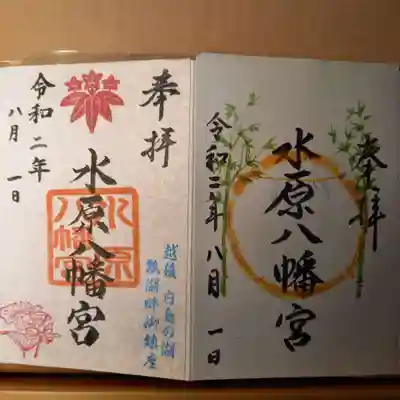 奉拝
水原八幡宮
水原八幡宮
令和二年
八月一日
越後 白鳥の湖
瓢湖畔御鎮座
奉拝
水原八幡宮
令和二年八月一日